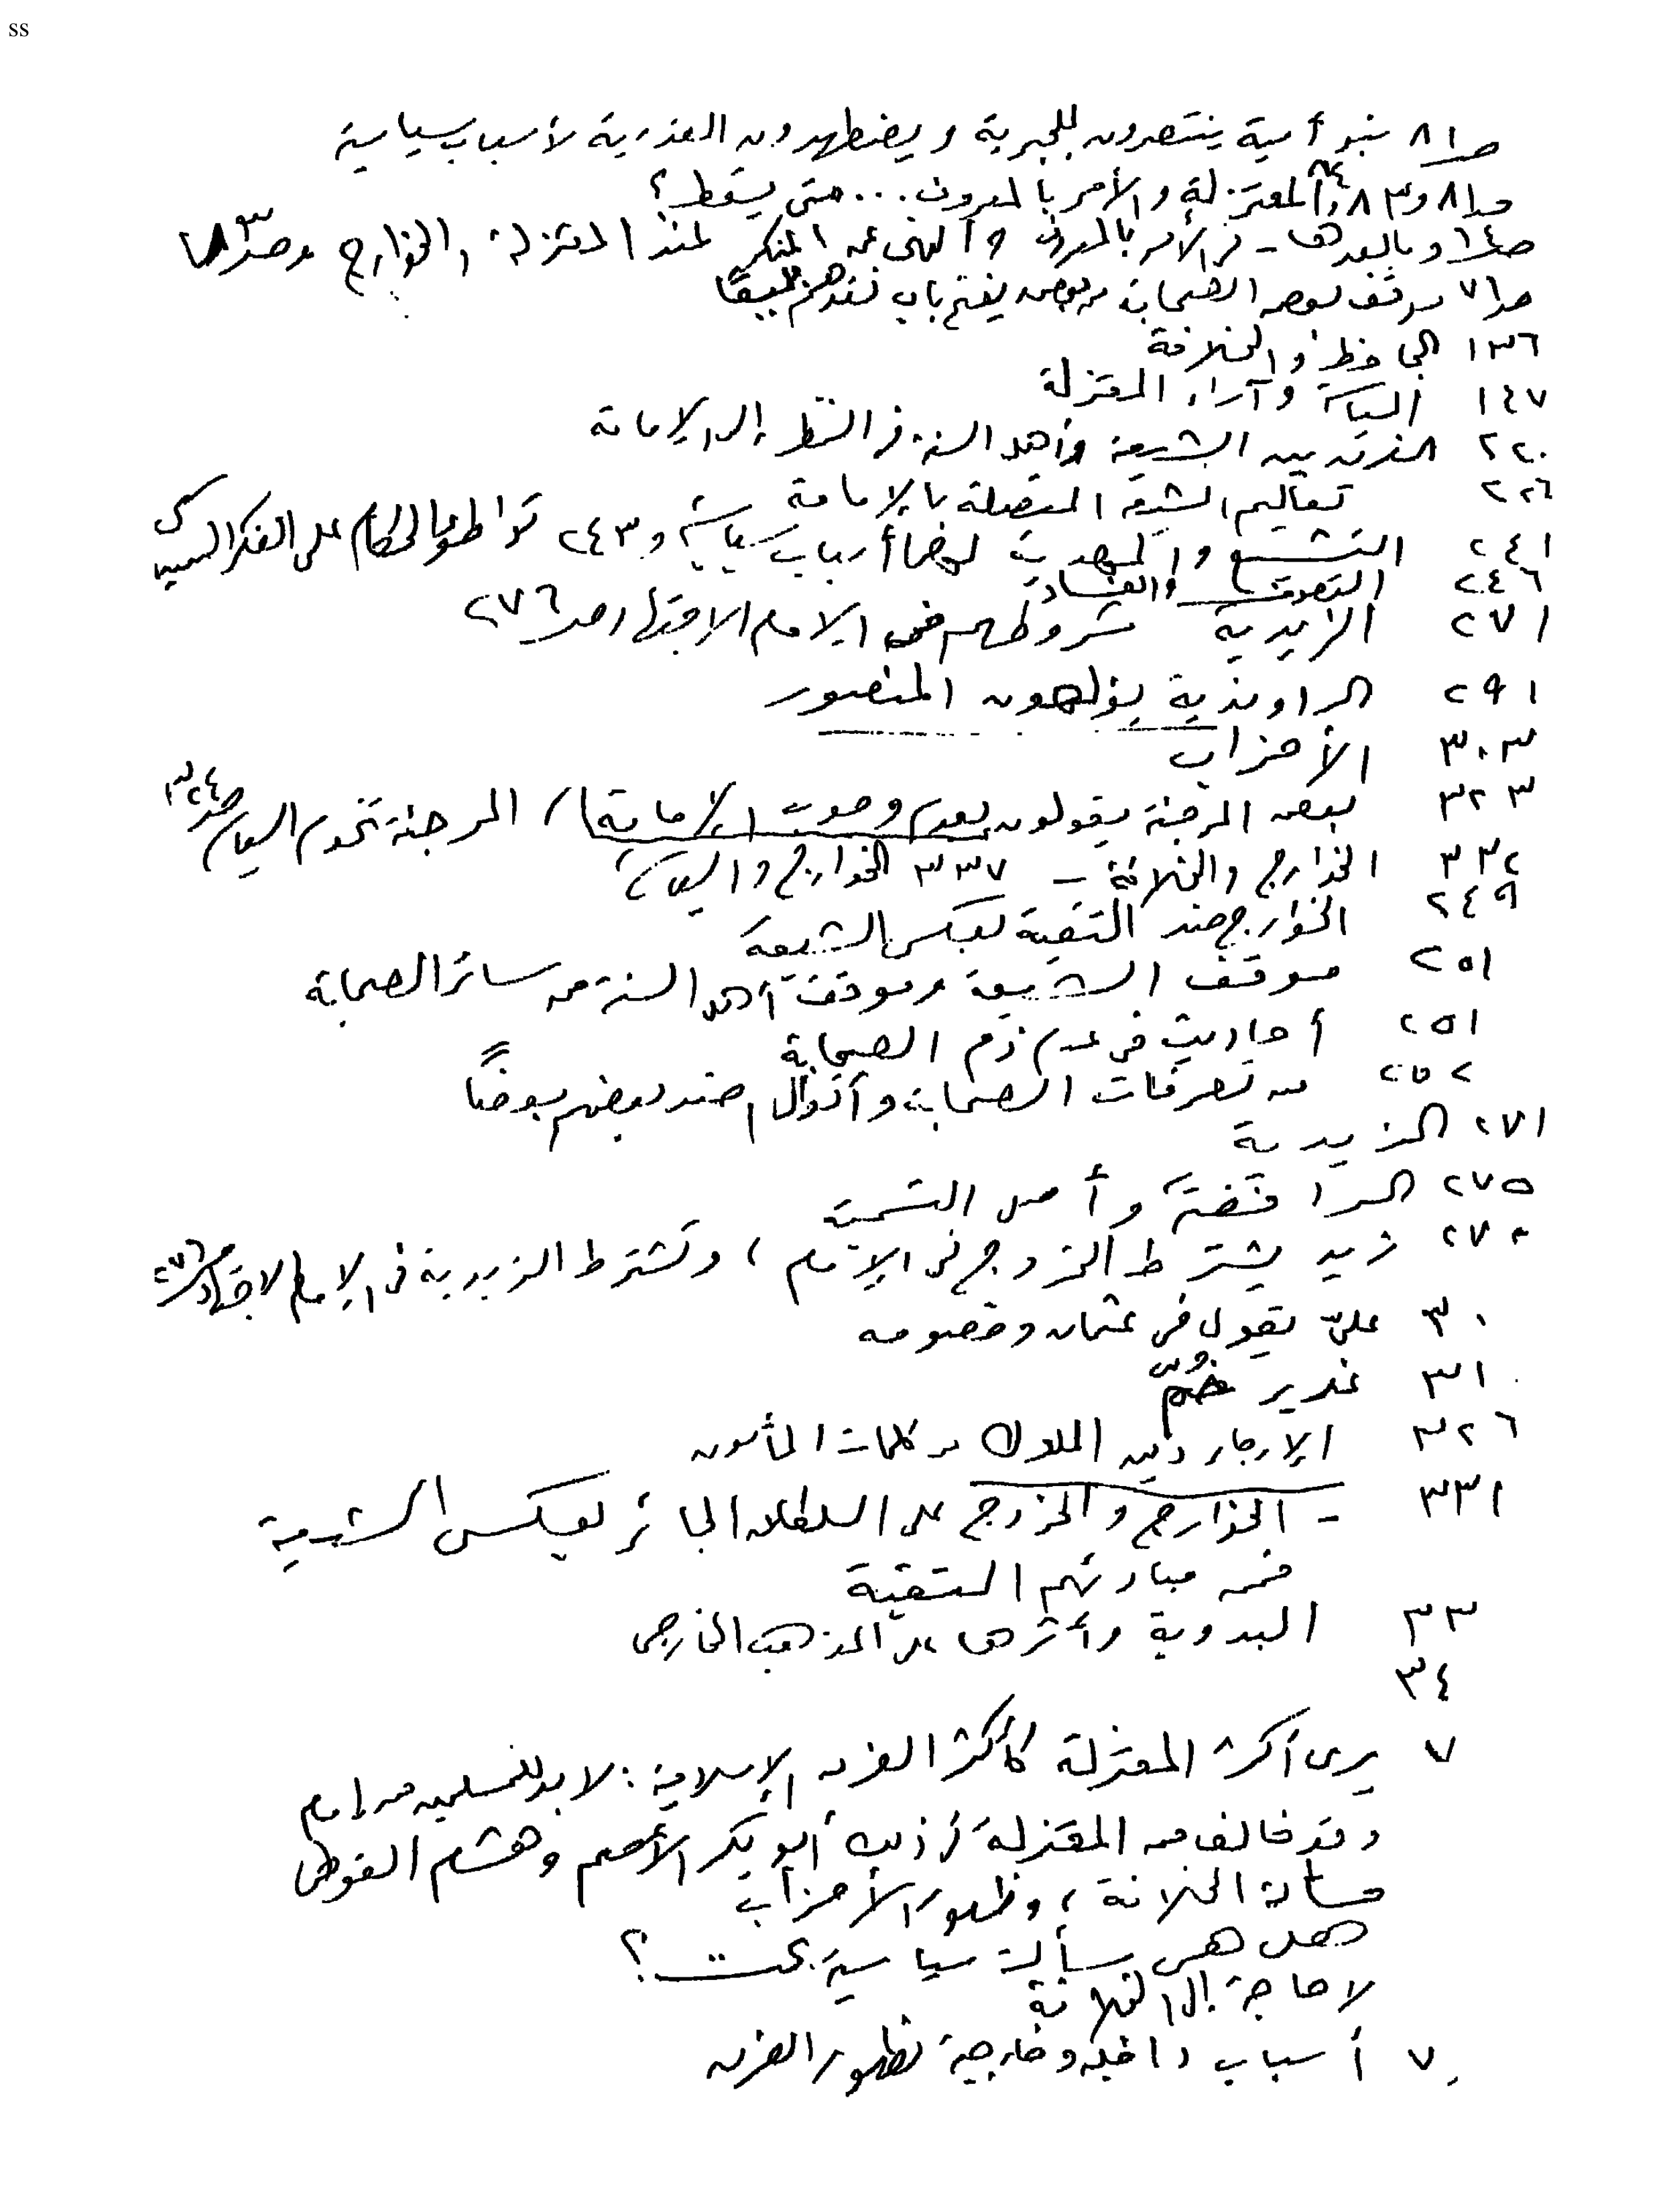 ss
ص٨١ بنو أمية ينتصرون للجبرية ويضطهدون القدرية لأسباب سياسية
ص٨١ و٨٣ و٨٤ المعتزلة والأمر بالمعروف... متى يسقط؟
ص٦٤ وما بعدها - في الأمر بالمعروف والنهي عن المنكر عند المعتزلة والخوارج
ص٧١ موقف بعض الصحابة من بعض يفتح باب نقدهم جميعًا
١٣٦ الجاحظ والخلافة
١٤٧ السياسة وآراء المعتزلة
٢٢٠ الفرق بين الشيعة وأهل السنة في النظر إلى الإمامة
٢٢٦ تعاليم الشيعة المتصلة بالإمامة
٢٤١ التشيع والمهدية لهما أسباب سياسية و٢٤٣ تواطؤ الحكام على الفكر السياسي
٢٤٦ التصوف والفساد
٢٧١ الزيدية شروطهم في الإمام الاجتهاد ص٢٧٦
٢٩١ الراوندية يؤلهون المنصور
٣٠٣ الأحزاب
٣٢٣ بعض المرجئة يقولون بعدم وجوب الإمامة / المرجئة تخدم السياسة ص٣٢٤
٣٣٢ الخوارج والخلافة - ٣٣٧ الخوارج والسياسة
٢٤٩ الخوارج ضد التقية بعكس الشيعة
٢٥١ موقف الشيعة وموقف أهل السنة من سائر الصحابة
٢٥١ أحاديث في عدم ذم الصحابة
٢٥٢ من تصرفات الصحابة وأقوالهم ضد بعضهم بعضًا
٢٧١ الزيدية
٢٧٥ الرافضة وأصل التسمية
٢٧٢ زيد يشترط الخروج في الإمام، وتشترط الزيدية في الإمام الاجتهاد ص٢٧٦
٣٠ عليّ يقول في عثمان وخصومه
٣١ غدير خُمّ
٣٢٦ الإرجاء دين الملوك من كلمات المأمون
٣٣١ - الخوارج والخروج على السلطان الجائر بعكس الشيعة
فمن مبادئهم التقية
٣٣ البدوية وأثرها على المذهب الخارجي
٣٤
٧ يرى أكثر المعتزلة كأكثر الفرق الإسلامية: لا بد للمسلمين من إمام
وقد خالف من المعتزلة في ذلك أبو بكر الأصم وهشام الفوطي
مسألة الخلافة، وظهور الأحزاب
هل هي مسألة سياسية بحتة؟
لا حاجة إلى الخلافة
٧ أسباب داخلية وخارجية لظهور الفرق